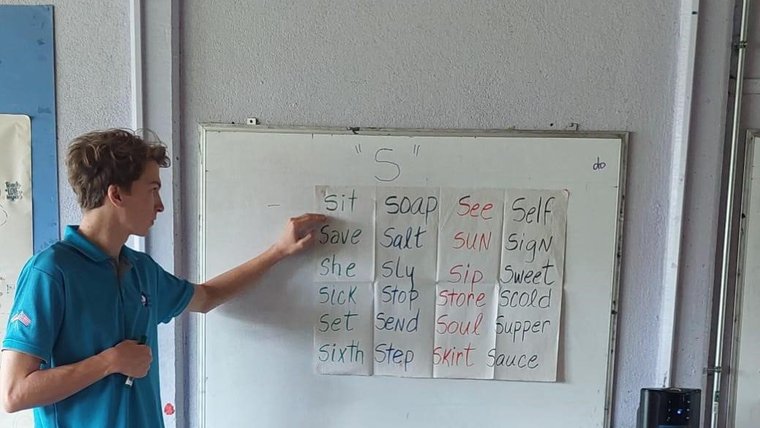 "S"
do
sit soap see self
save salt sun sign
she sly sip sweet
sick stop store scold
set send soul supper
sixth step skirt sauce